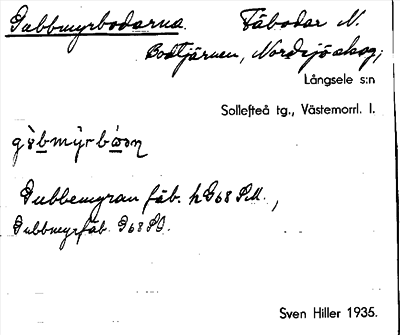 Gubbmyrbodarna. Fäbodar N.
Bodtjärnen, Nordsjöskog,
Långsele s:n
Sollefteå tg., Västernorrl. l.
Gubbemyran fäb. h G68 SM.,
Gubbmyrfäb. G68 SO.
Sven Hiller 1935.